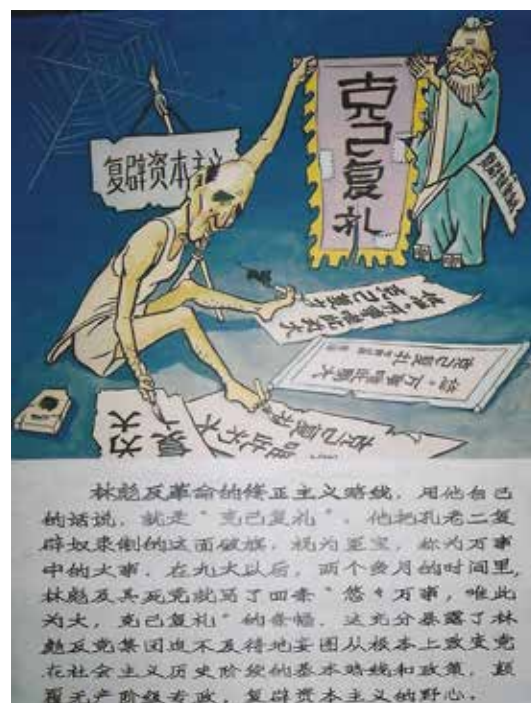 克己复礼
复辟资本主义
克己复礼
林彪反革命的修正主义路线，用他自己
的话说，就是“克己复礼”。他把孔老二复
辟奴隶制的这面破旗，视为至宝，称为万事
中的大事。在九大以后，两个多月的时间里，
林彪及其死党就写了四条“悠々万事，唯此
为大，克己复礼”的条幅。这充分暴露了林
彪反党集团迫不及待地妄图从根本上改变党
在社会主义历史阶段的基本路线和政策，颠
覆无产阶级专政，复辟资本主义的野心。